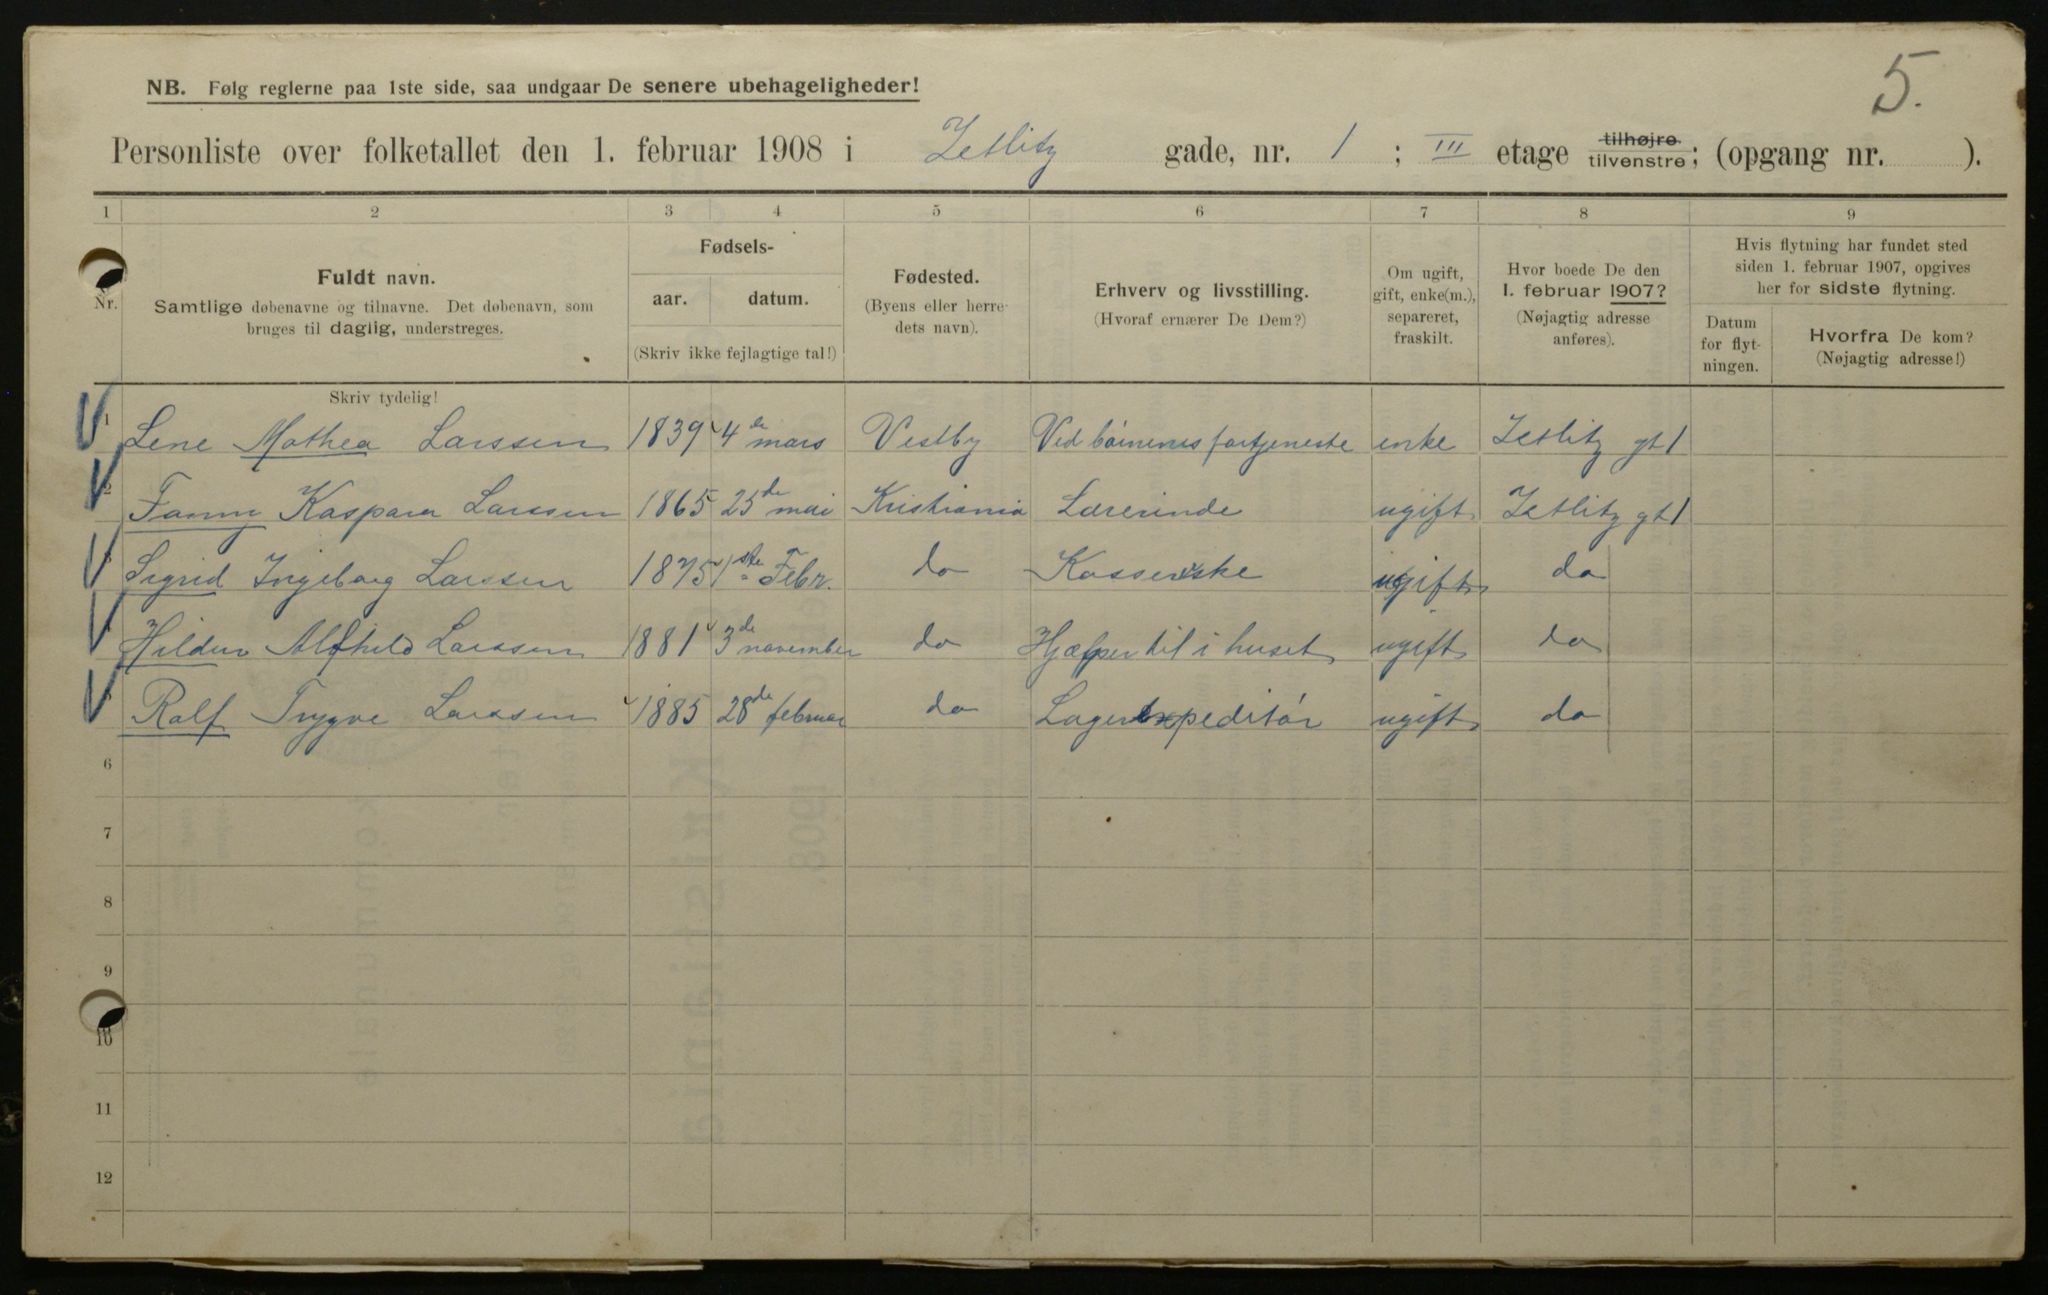 5.
NB. Følg reglerne paa 1ste side, saa undgaar De senere ubehageligheder!
Personliste over folketallet den 1. februar 1908 i Zetlitz gade, nr. 1 ; III etage tilhøjre tilvenstre; (opgang nr. ).
1 2 3 4 5 6 7 8 9
Nr.
Fuldt navn.
Samtlige døbenavne og tilnavne. Det døbenavn, som
bruges til daglig, understreges.
Skriv tydelig!
Fødsels-
aar. datum.
(Skriv ikke fejlagtige tal!)
Fødested.
(Byens eller herre-
dets navn).
Erhverv og livsstilling.
(Hvoraf ernærer De Dem?)
Om ugift,
gift, enke(m.),
separeret,
fraskilt.
Hvor boede De den
1. februar 1907?
(Nøjagtig adresse
anføres).
Hvis flytning har fundet sted
siden 1. februar 1907, opgives
her for sidste flytning.
Datum
for flyt-
ningen.
Hvorfra De kom?
(Nøjagtig adresse!)
1 Lene Mathea Larssen 1839 4de mars Vestby Ved børnenes fortjeneste enke Zetlitz gt 1
2 Fanny Kaspara Larssen 1865 25de mai Kristiania Lærerinde ugift Zetlitz gt 1
3 Sigrid Ingeborg Larssen 1875 1ste Febr. do Kasserske ugift do
4 Hildur Alfhild Larssen 1881 3de november do Hjælper til i huset ugift do
5 Ralf Trygve Larssen 1885 28de februar do Lagerexpeditór ugift do
6
7
8
9
10
11
12